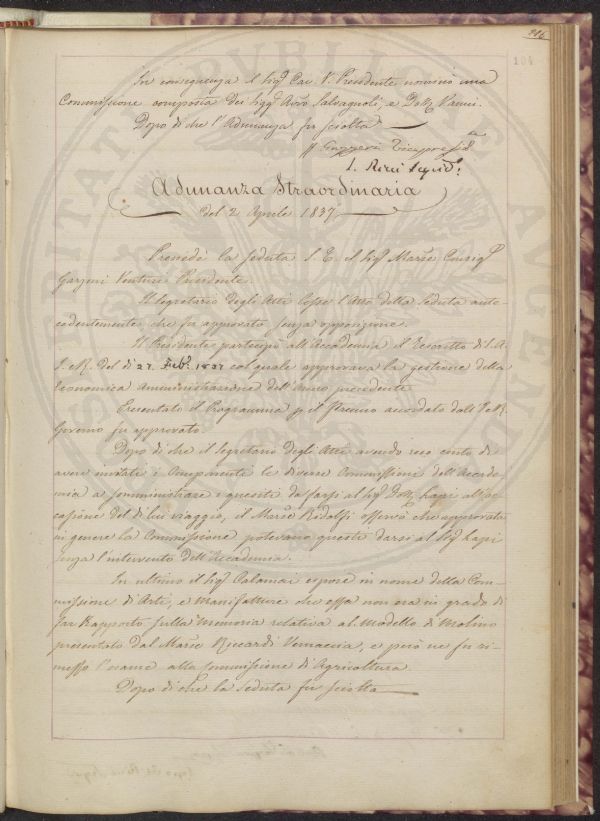 216
101
In conseguenza il Sig.r Cav. V. Presidente nominò una
Commissione composta dei Sigg.ri Avv.o Salvagnoli, e Dott.
Dopo di che l'Adunanza fu sciolta
Vicepresid.
Segr.o
Adunanza Straordinaria
del 2 Aprile 1837.
Presiedè la seduta S. E. il Sig.r March.e Consig.r
Garzoni Venturi Presidente.
Il Segretario degli Atti lesse l'Atto della seduta ante-
cedentemente che fu approvato senza opposizione.
Il Presidente partecipò all'Accademia il Rescritto di S. A.
I. e R. del dì 27 Feb.o 1837 col quale approvava la gestione della
Economica Amministrazione dell'Anno precedente.
Presentato il Programma p. il Premio accordato dall'I. e R.
Governo fu approvato.
Dopo di che il Segretario degli Atti avendo reso conto di
avere invitate i Componenti le diverse Commissioni dell'Accade-
mia a somministrare i quesiti da farsi al Sig.r Dott. Lapi all'oc-
casione del di lui viaggio, il March.e Ridolfi osservò che approvate
in genere la Commissione potevano questi darsi al Sig.r Lapi
senza l'intervento dell'Accademia.
In ultimo il Sig.r Calamai espose in nome della Com-
missione d'Arti, e Manifatture che essa non era in grado di
far Rapporto sulla Memoria relativa al Modello di Molino
presentato dal March.e Riccardi Vernaccia, e però ne fu ri-
messo l'esame alla Commissione di Agricoltura.
Dopo di che la Seduta fu sciolta